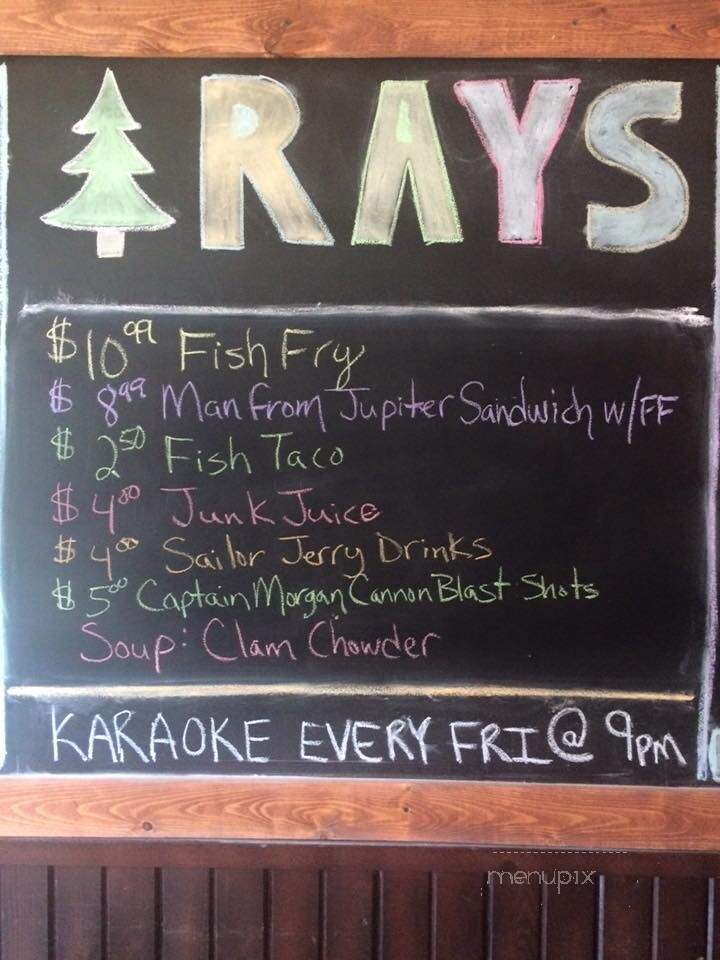 RAYS
$10.99 Fish Fry
$ 8.99 Man from Jupiter Sandwich w/FF
$ 2.50 Fish Taco
$ 4.00 Junk Juice
$ 4.00 Sailor Jerry Drinks
$ 5.00 Captain Morgan Cannon Blast Shots
Soup: Clam Chowder
KARAOKE EVERY FRI @ 9pm
menupix